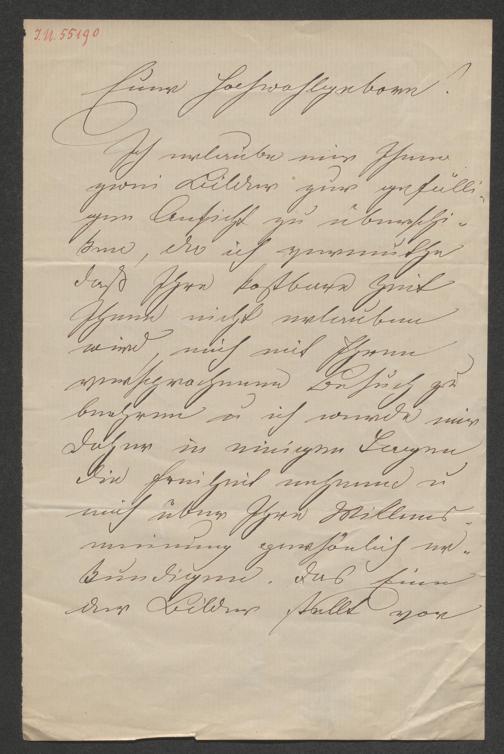 I.N. 55190
Euer Hochwohlgeboren!
Ich erlaube mir Ihnen
zwei Bilder zur gefälli-
gen Ansicht zu überschi-
ken, da ich vermuthe
daß Ihre kostbare Zeit
Ihnen nicht erlauben
wird, mich mit Ihrem
versprochenen Besuch zu
beehren u ich werde mir
daher in einigen Tagen
die Freiheit nehmen u
mich über Ihre Willens-
meinung persönlich er-
kundigen. Das Eine
der Bilder stellt vor